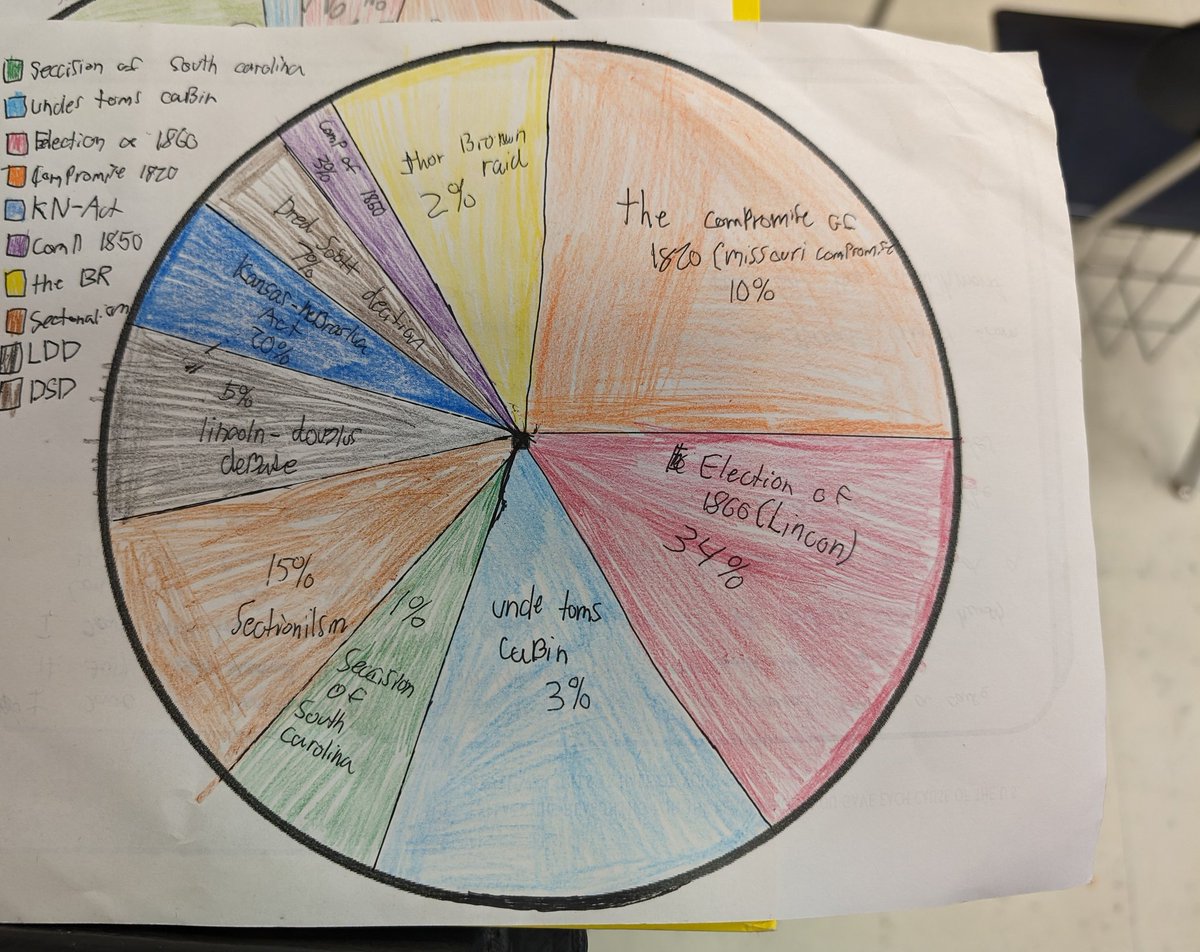 Seccision of South carolina
undes toms caBin
Election of 1860
Compromise 1820
KN-Act
Com 1850
the BR
Sectonalism
LDD
DSD
thor Brown
raid
2%
Comp of 1860
3%
Dred Scott decition
7%
Kansas-nebraska
Act
20%
5%
lincoln-douglus
deBate
15%
Sectionilsm
1%
Seccision
of
South
carolina
uncle toms
CaBin
3%
Election of
1860 (Lincon)
34%
the compromise of
1820 (missouri compromise
10%